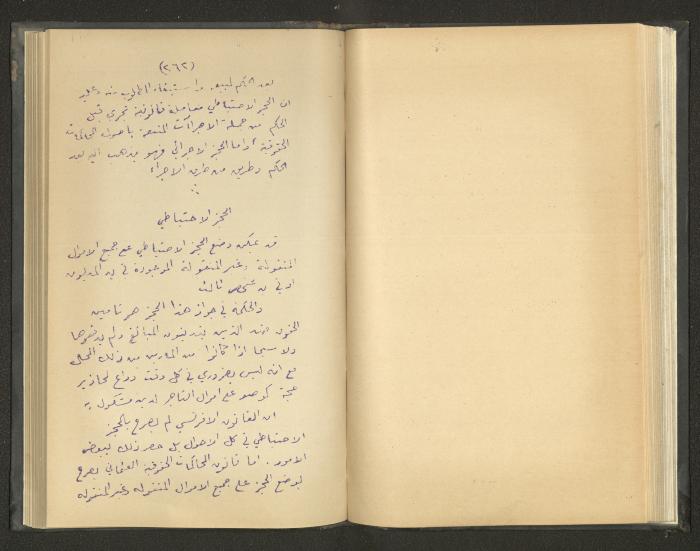 (٢٦٢)
بعد الحكم لبيعه واستيفاء المطلوب منه وعليه
ان الحجز الاحتياطي معاملة قانونية تجري قبل
الحكم من جملة الاجراآت المختصة باصول المحاكمات
الحقوقية اما الحجز الاجرائي فهو يذهب اليه بعد
الحكم وطريق من طرق الاجراء
الحجز الاحتياطي
قد يمكن وضع الحجز الاحتياطي على جميع الاموال
المنقولة وغير المنقولة الموجودة في يد المديون
او في يد شخص ثالث
والحكمة في جواز هذا الحجز هو تأمين
الحقوق ضد الذين يتدينون المبالغ ولم يدفعوها
ولا سيما اذا كانوا من
مع انه ليس بضروري في كل وقت
على اموال التاجر
ان القانون الافرنسي لم يصرح بالحجز
الاحتياطي في كل الاحوال بل حصر ذلك ببعض
الامور . اما قانون المحاكمات الحقوقية العثماني يصرح
بوضع الحجز على جميع الاموال المنقوله وغير المنقوله